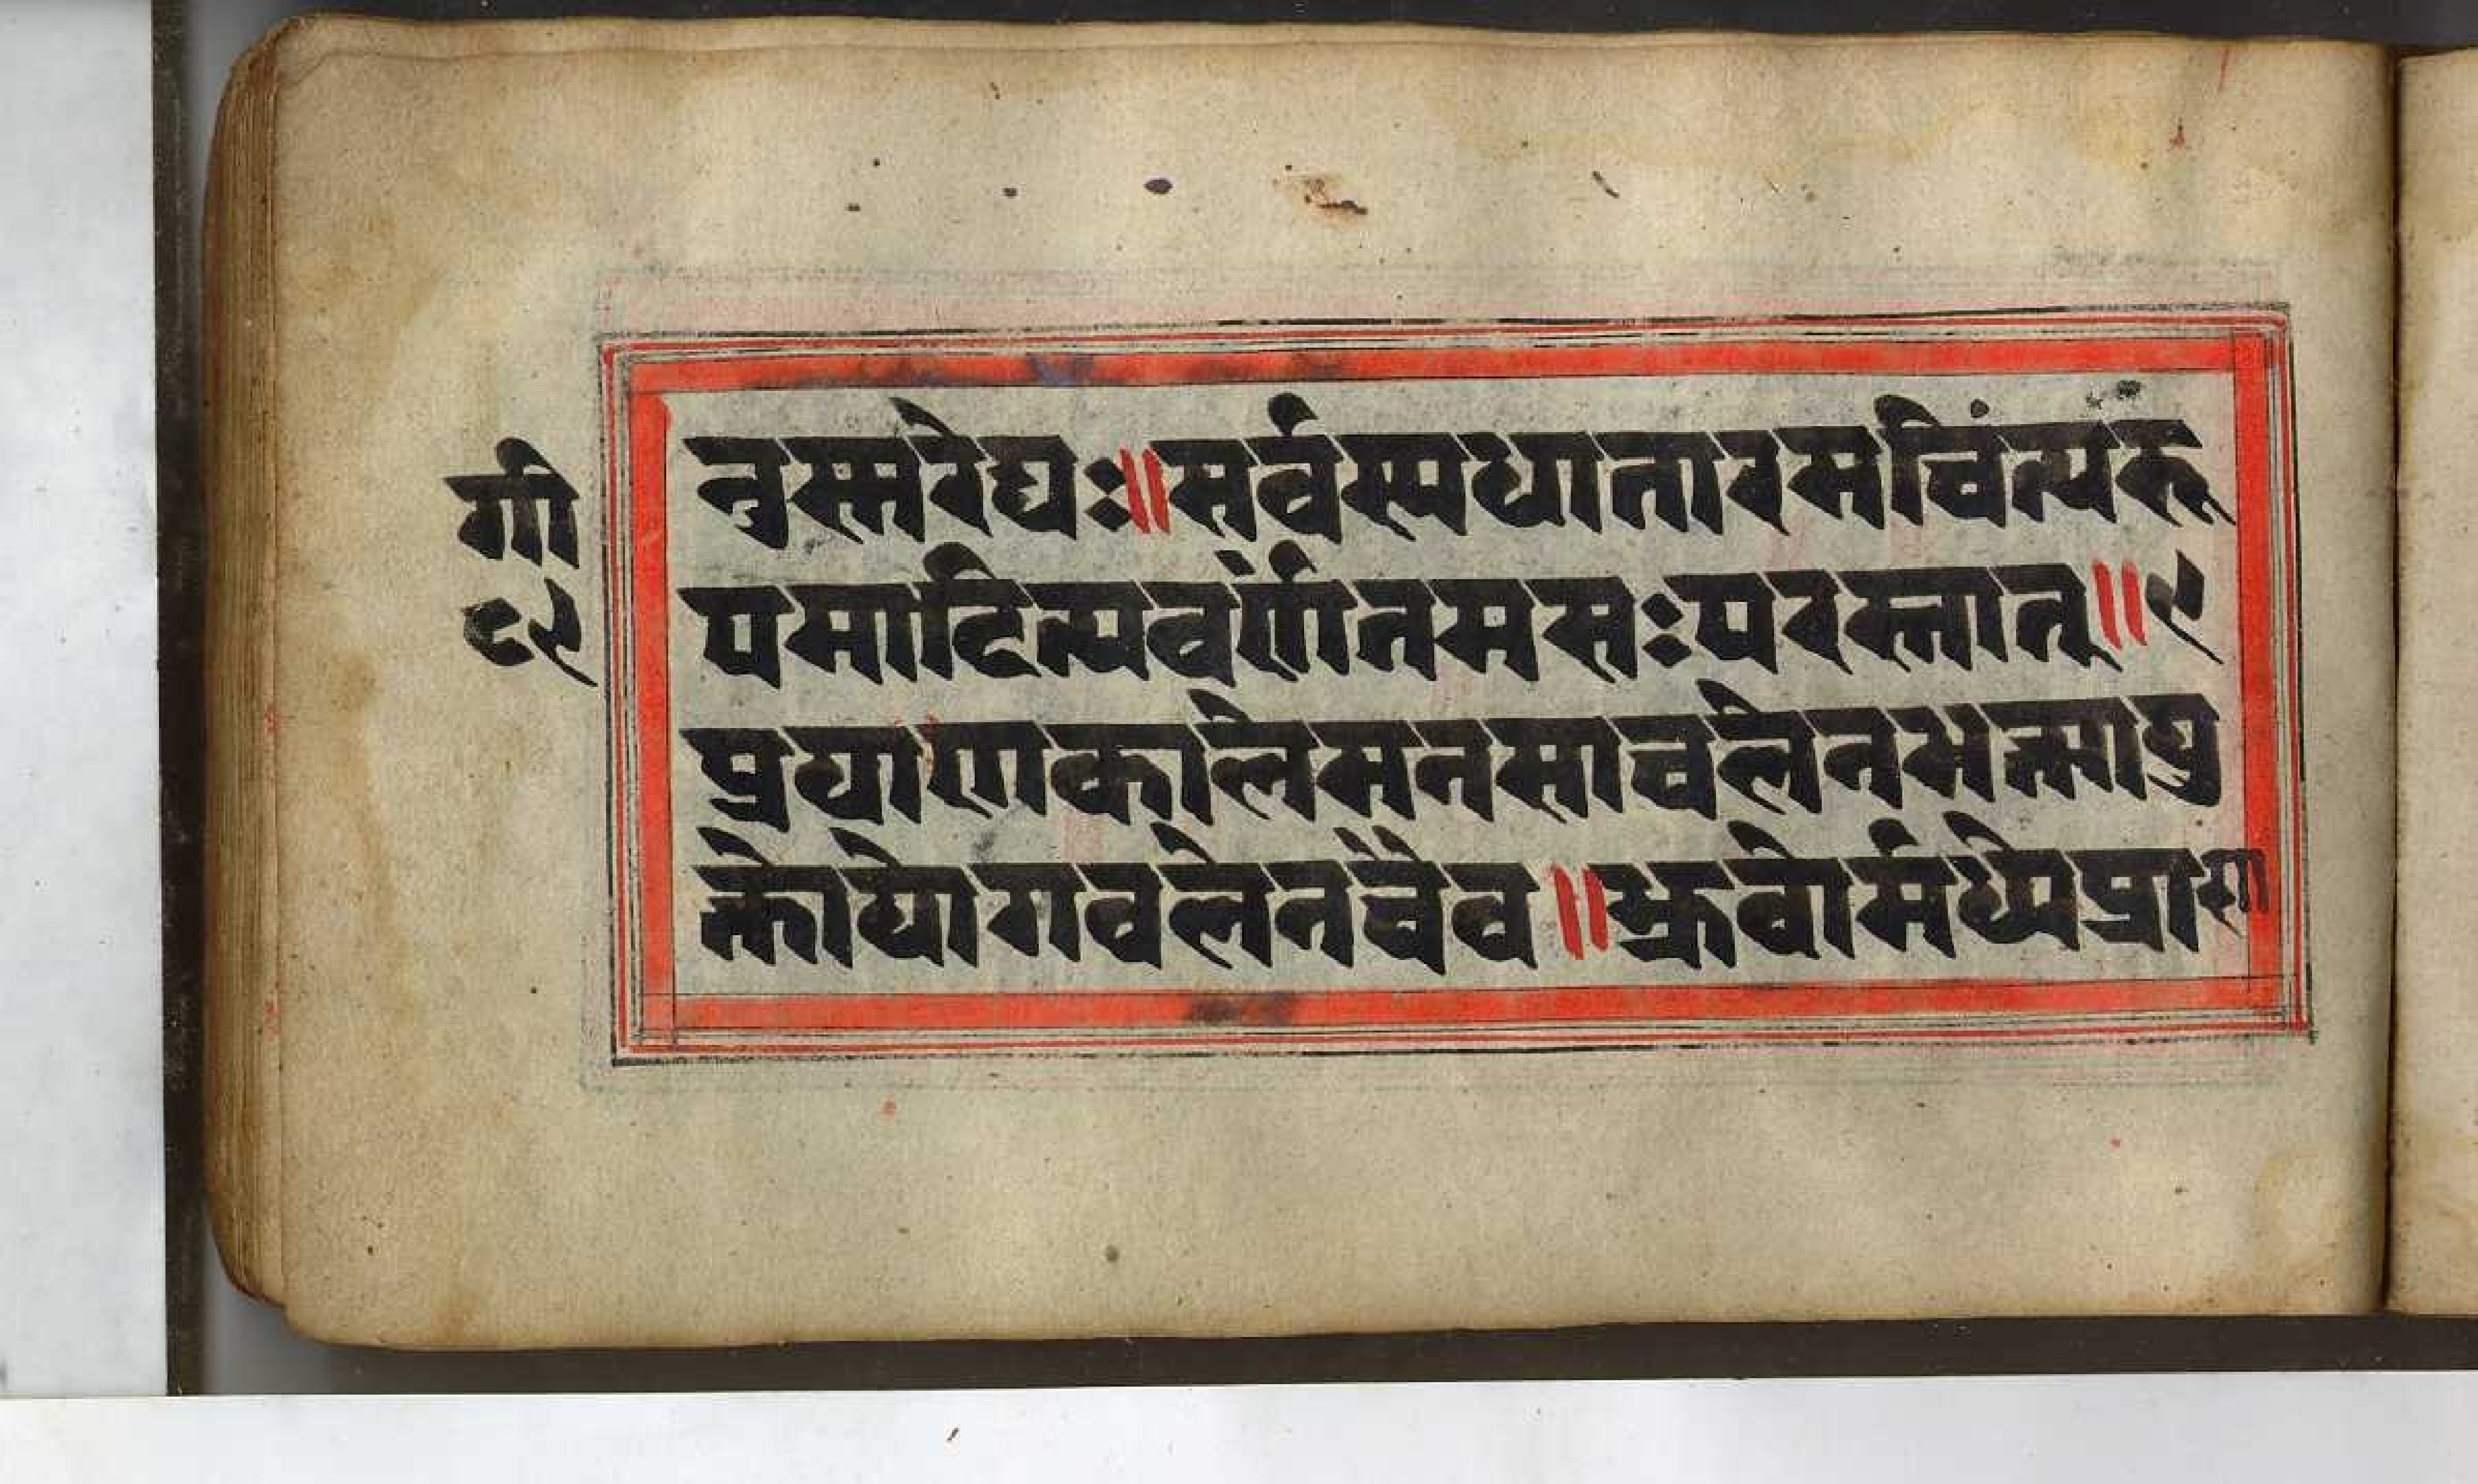 गी
८९
नुस्मरेद्यः॥सर्वस्यधातारमचिंत्यरू
पमादित्यवर्णंतमसःपरस्तात्॥९
प्रयाणकालेमनसाचलेनभक्त्यायु
क्तोयोगबलेनचैव॥भ्रुवोर्मध्येप्राण